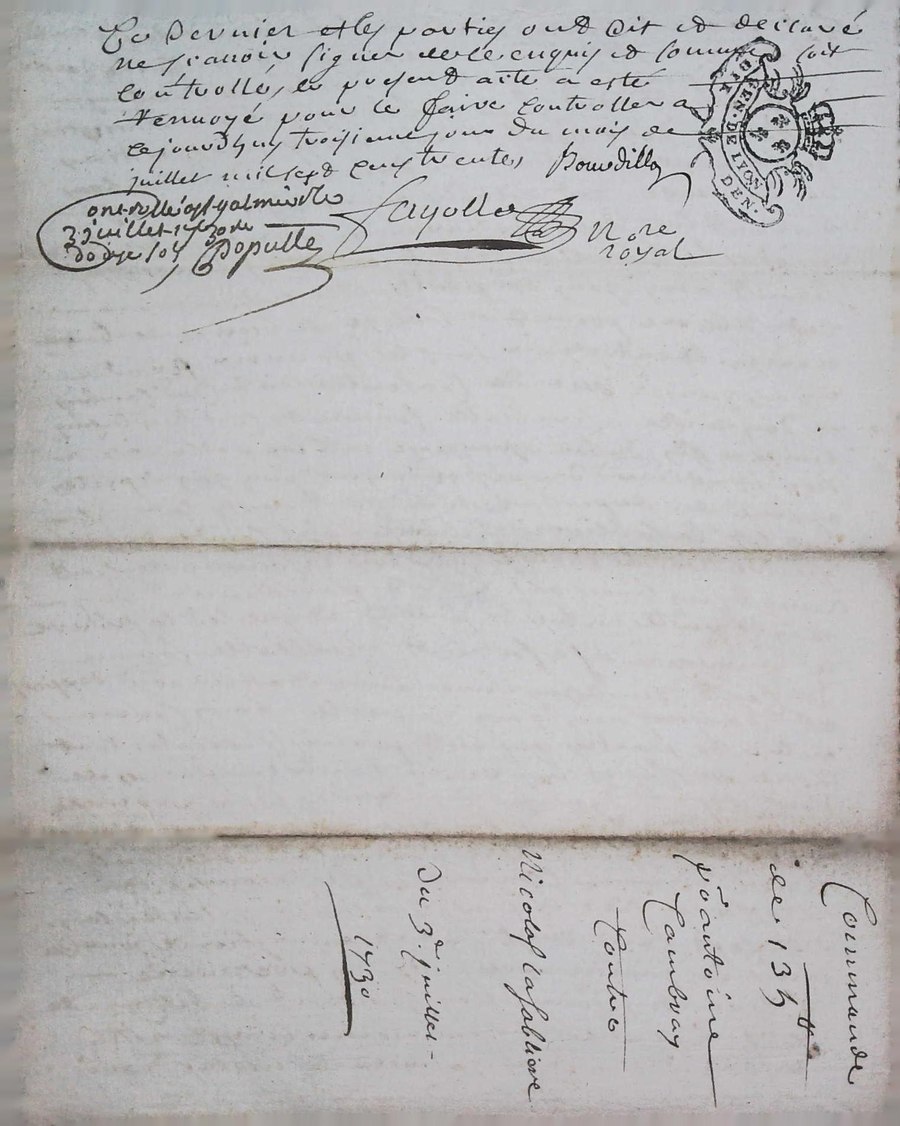 Ce dernier et les parties ont dit et desclaré
ne scavoir signer de ce enquis et sommé soit
controllé, le present acte a esté
renvoyé pour le faire controller a
cejourdhuy troisieme jour du mois de
juillet mil sept cens trente Bourdillon
3 juillet 1730
Fayolle
Nore
royal
Populle
GEN. DE LYON
DEN.
Commande
de 135 tt
pr antoine
Cambray
Contre
Nicolas
Du 3e juillet
1730